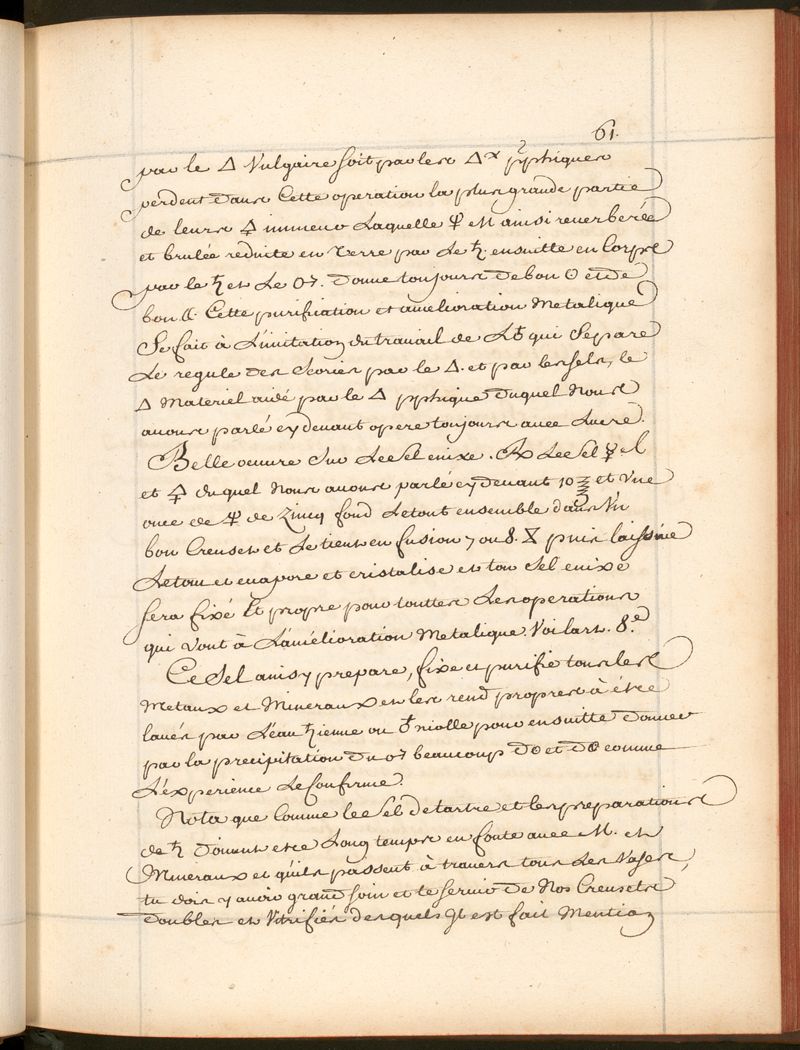 61.
par le 🜂 Vulgaire soit par les 🜂x pphiques
perdent dans Cette operation la plus grande partie
de leurs 🜍 immeur Laquelle est ainsi reverberée
et brulée reduite en Terre par Le ♄. ensuitte en Corps
par le ♄ et Le ♂. donne toujours de bon ☉ et de
bon ☾. Cette purifiation et amelioration Metalique
Se fait à L'imitation du travail de L♁ qui Separe
Le regule des Scories par le 🜂. et par les sels, le
🜂 Materiel aidé par le 🜂 pphique duquel Nous
avons parlé cy devant opere toujours avec Sucré.
Belle oeuvre Sur Le Sel enixe. ℞ Le Sel
et 🜍 duquel Nous avons parlé cy devant 10 et Une
once de de Zincq fond Le tout ensemble dans Un
bon Creuset et Le tient en fusion 7 ou 8. puis laissine
Le tout et evapore et cristalise et ton Sel enixe
sera fixé Et propre pour touttes Les operations
qui vont à L'amélioration Metalique. Voilart. 8.e
Ce Sel ainsy prepare, fixe et purifie tous les
Metaux et Mineraux et les rend propres à être
lavés par L'eau ♄ienne ou ♁riolle pour ensuitte donner
par la precipitation du ♂ beaucoup d☉ et d comme
L'experience Le Confirme.
Nota que Comme le Sel de tartre et les preparations
de ♄ doivent etre Long temps en fonte avec M. et
Mineraux et quils passent à travers tous Les Vases,
tu dois y avoir grand soin et te servir de Nos Creusets
doubles et Vitrifiés desquels Il est fait Mention